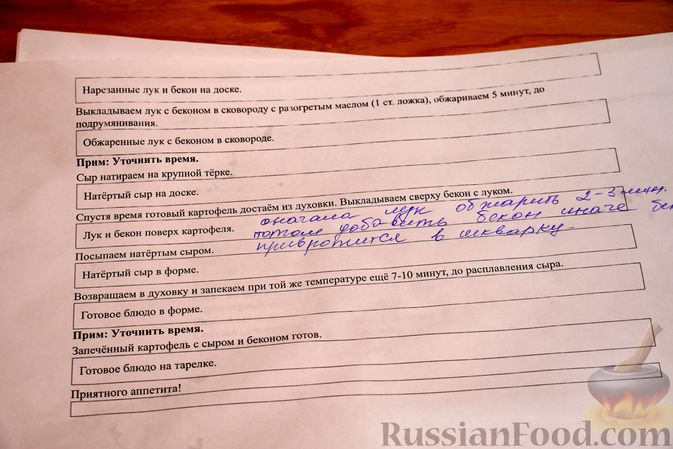 Нарезанные лук и бекон на доске.
Выкладываем лук с беконом в сковороду с разогретым маслом (1 ст. ложка), обжариваем 5 минут, до
подрумянивания.
Обжаренные лук с беконом в сковороде.
Прим: Уточнить время.
Сыр натираем на крупной тёрке.
Натёртый сыр на доске.
Спустя время готовый картофель достаём из духовки. Выкладываем сверху бекон с луком.
сначала лук обжарить 2-3 мин.
Лук и бекон поверх картофеля.
потом добавить бекон иначе бек
Посыпаем натёртым сыром.
привротится в шкварку.
Натёртый сыр в форме.
Возвращаем в духовку и запекаем при той же температуре ещё 7-10 минут, до расплавления сыра.
Готовое блюдо в форме.
Прим: Уточнить время.
Запечённый картофель с сыром и беконом готов.
Готовое блюдо на тарелке.
Приятного аппетита!
RussianFood.com